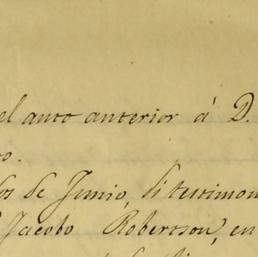 el auto anterior á D.
o.
os de Junio, di testimon
Jacobo Robertson, en